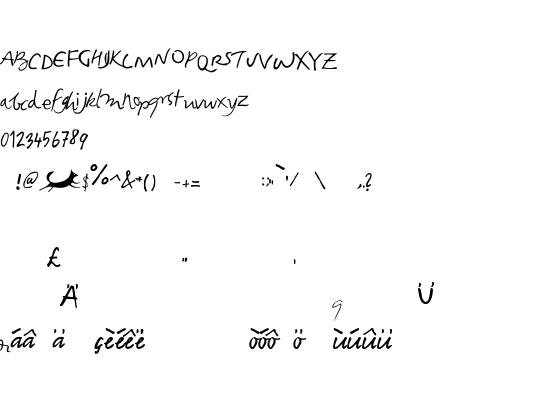 ABCDEFGHIJKLMNOPQRSTUVWXYZ
abcdefghijklmnopqrstuvwxyz
0123456789
!@ $%^&*() -+= :;"` '/ \ ,.?
£ " '
Ä Ü
9
áâ ä çèéêë òóô ö ùúûü